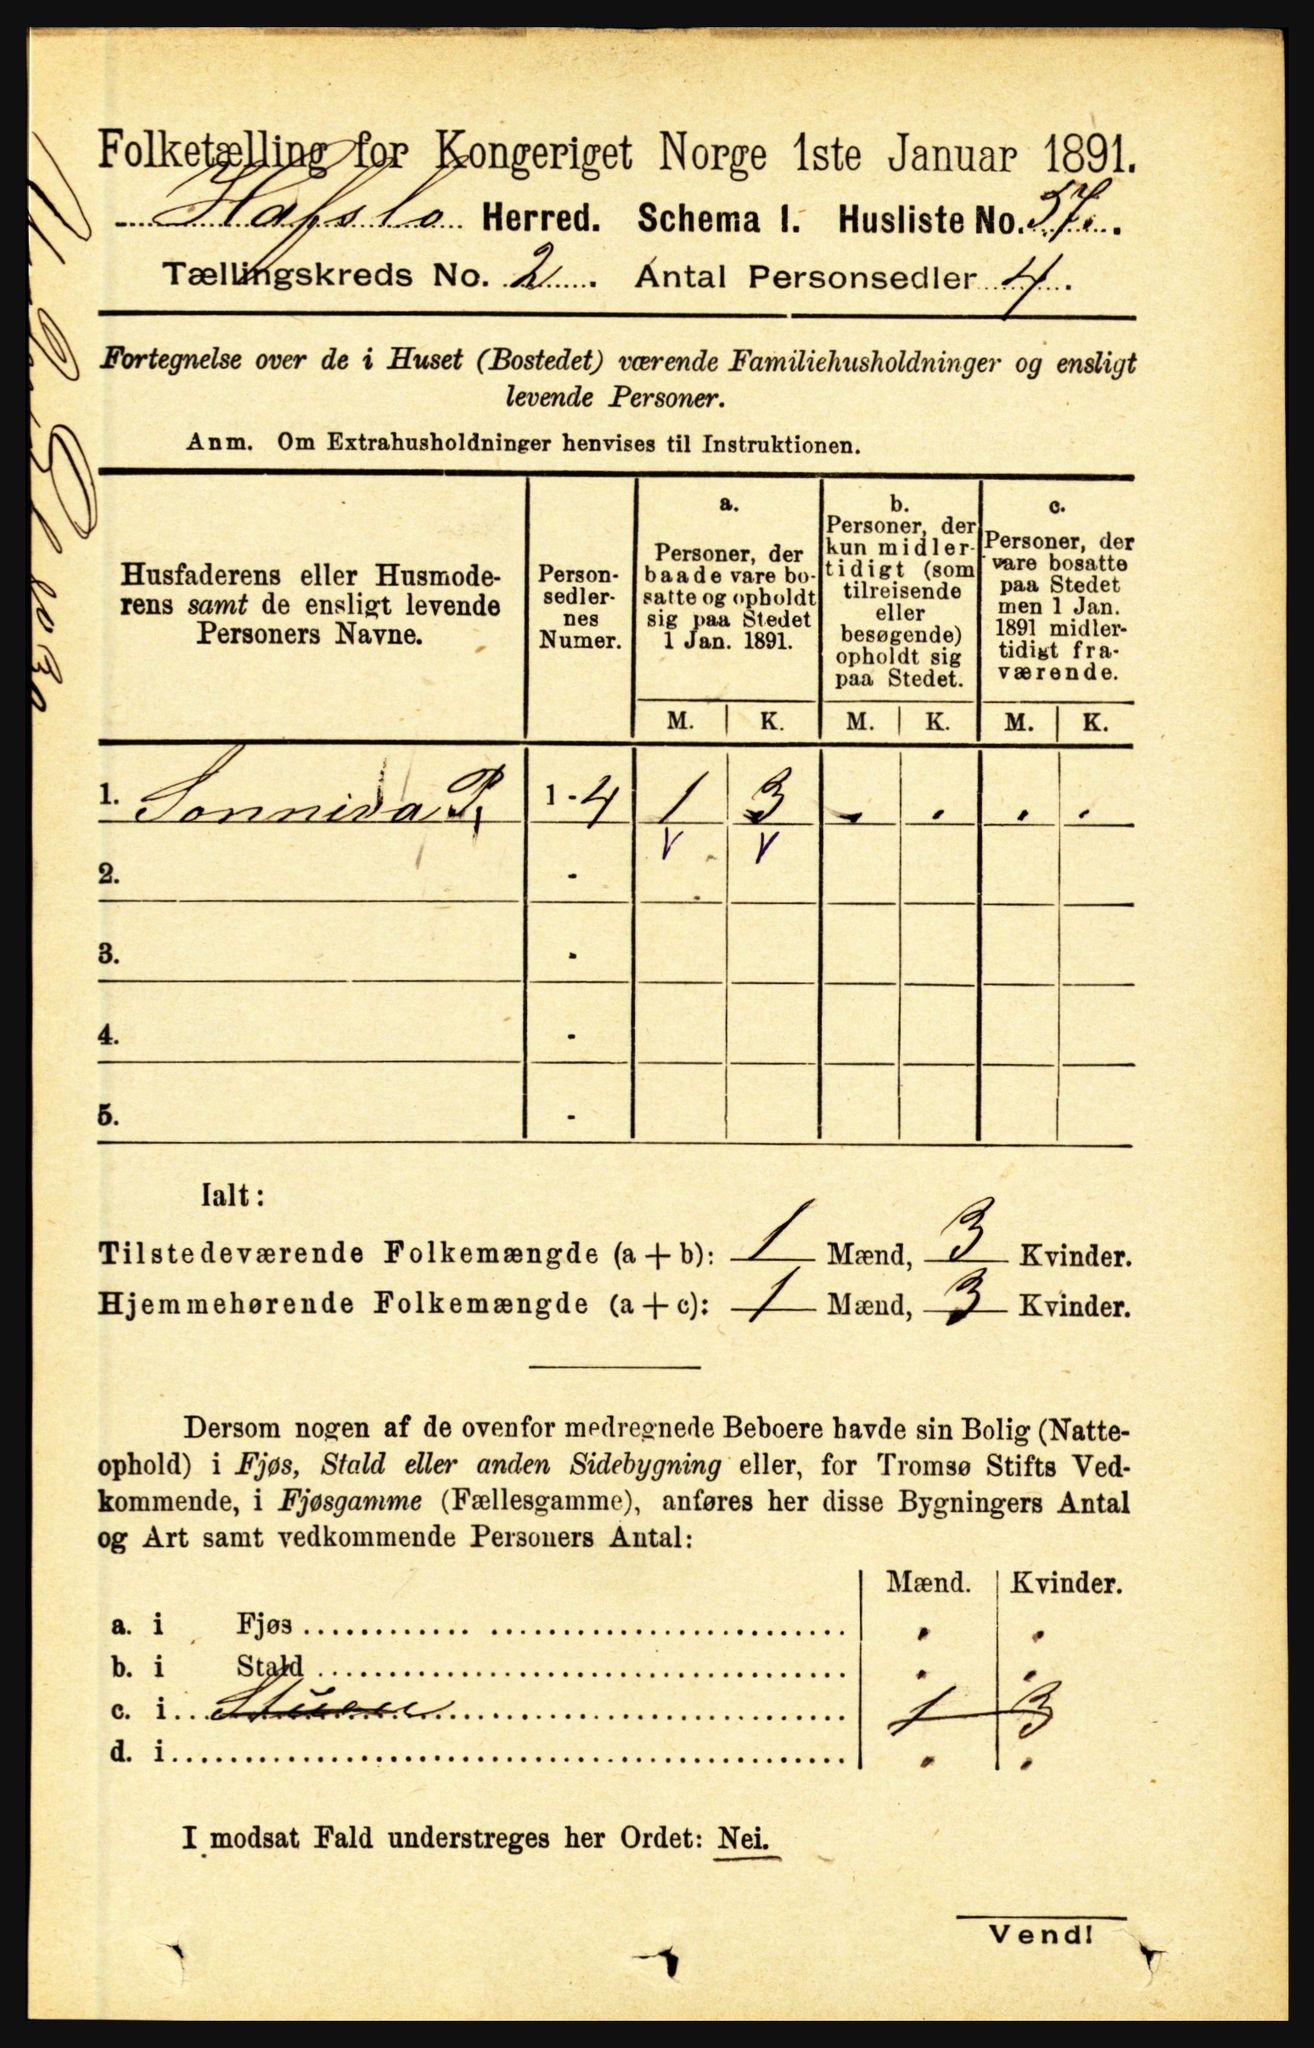 Folketælling for Kongeriget Norge 1ste Januar 1891.
Hafslo Herred. Schema I. Husliste No. 57.
Tællingskreds No. 2. Antal Personsedler 4.
Fortegnelse over de i Huset (Bostedet) værende Familiehusholdninger og ensligt
levende Personer.
Anm. Om Extrahusholdninger henvises til Instruktionen.
Husfaderens eller Husmode-
rens samt de ensligt levende
Personers Navne.
Person-
sedler-
nes
Numer.
a.
Personer, der
baade vare bo-
satte og opholdt
sig paa Stedet
1 Jan. 1891.
b.
Personer, der
kun midler-
tidigt (som
tilreisende
eller
besøgende)
opholdt sig
paa Stedet.
c.
Personer, der
vare bosatte
paa Stedet
men 1 Jan.
1891 midler-
tidigt fra-
værende.
M. K. M. K. M. K.
1. Sonniva P. 1-4 1 3 . . . .
2. -
3. -
4. -
5. -
Ialt:
Tilstedeværende Folkemængde (a + b): 1 Mænd, 3 Kvinder.
Hjemmehørende Folkemængde (a + c): 1 Mænd, 3 Kvinder.
Dersom nogen af de ovenfor medregnede Beboere havde sin Bolig (Natte-
ophold) i Fjøs, Stald eller anden Sidebygning eller, for Tromsø Stifts Ved-
kommende, i Fjøsgamme (Fællesgamme), anføres her disse Bygningers Antal
og Art samt vedkommende Personers Antal:
Mænd. Kvinder.
a. i Fjøs . .
b. i Stald . .
c. i 1 3
d. i . .
I modsat Fald understreges her Ordet: Nei.
Vend!